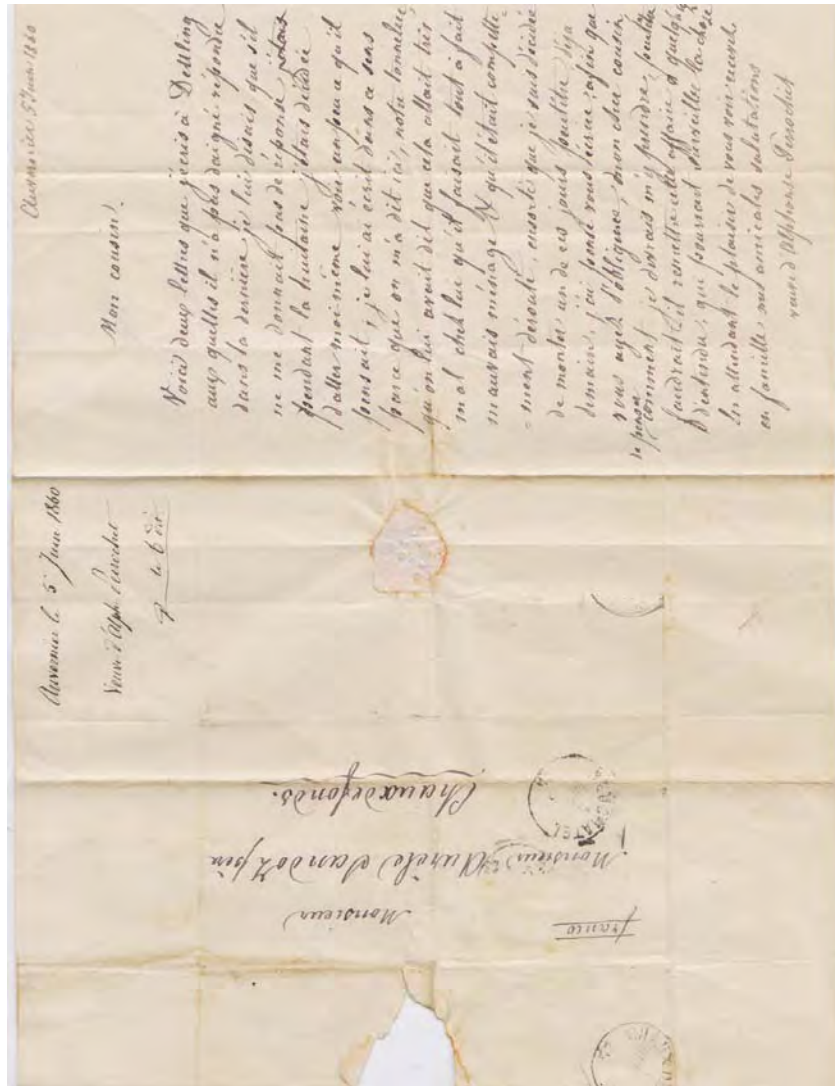 Auvernier 5 Juin 1860
Mon cousin!
Voici deux lettres que j'écris à Dettling
aux quelles il n'a pas daigné répondre
dans la dernière je lui disais que s'il
ne me donnait pas de réponse
pendant la huitaine j'étais décidée
d'aller moi-même voir un peu ce qu'il
pensait, je lui ai écrit dans ce sens
parce que on m'a dit ici, notre tonnelier
qu'on lui avait dit que cela allait très
mal chez lui qu'il faisait tout à fait
mauvais ménage & qu'il était complette
-ment dérouté, ensorte que je suis décidée
de monter un de ces jours peutêtre déja
demain, j'ai pensé vous écrire afin que
vous ayez l'obligence, mon cher cousin,
de penser
comment je devrais m'y prendre, peutêtre
faudrait-il remettre cette affaire a quelqu'
d'entendu, qui pourrait surveiller la chose
En attendant le plaisir de vous voir recevez
en famille nos amicales salutations
veuve d'Alphonse Perrochet
Auvernier le 5 Juin 1860
Veuve d'Alph. Perrochet
le 6 dit
franco
Monsieur
Monsieur Aurèle Sandoz père
Chauxdefonds.
NEUCHATEL